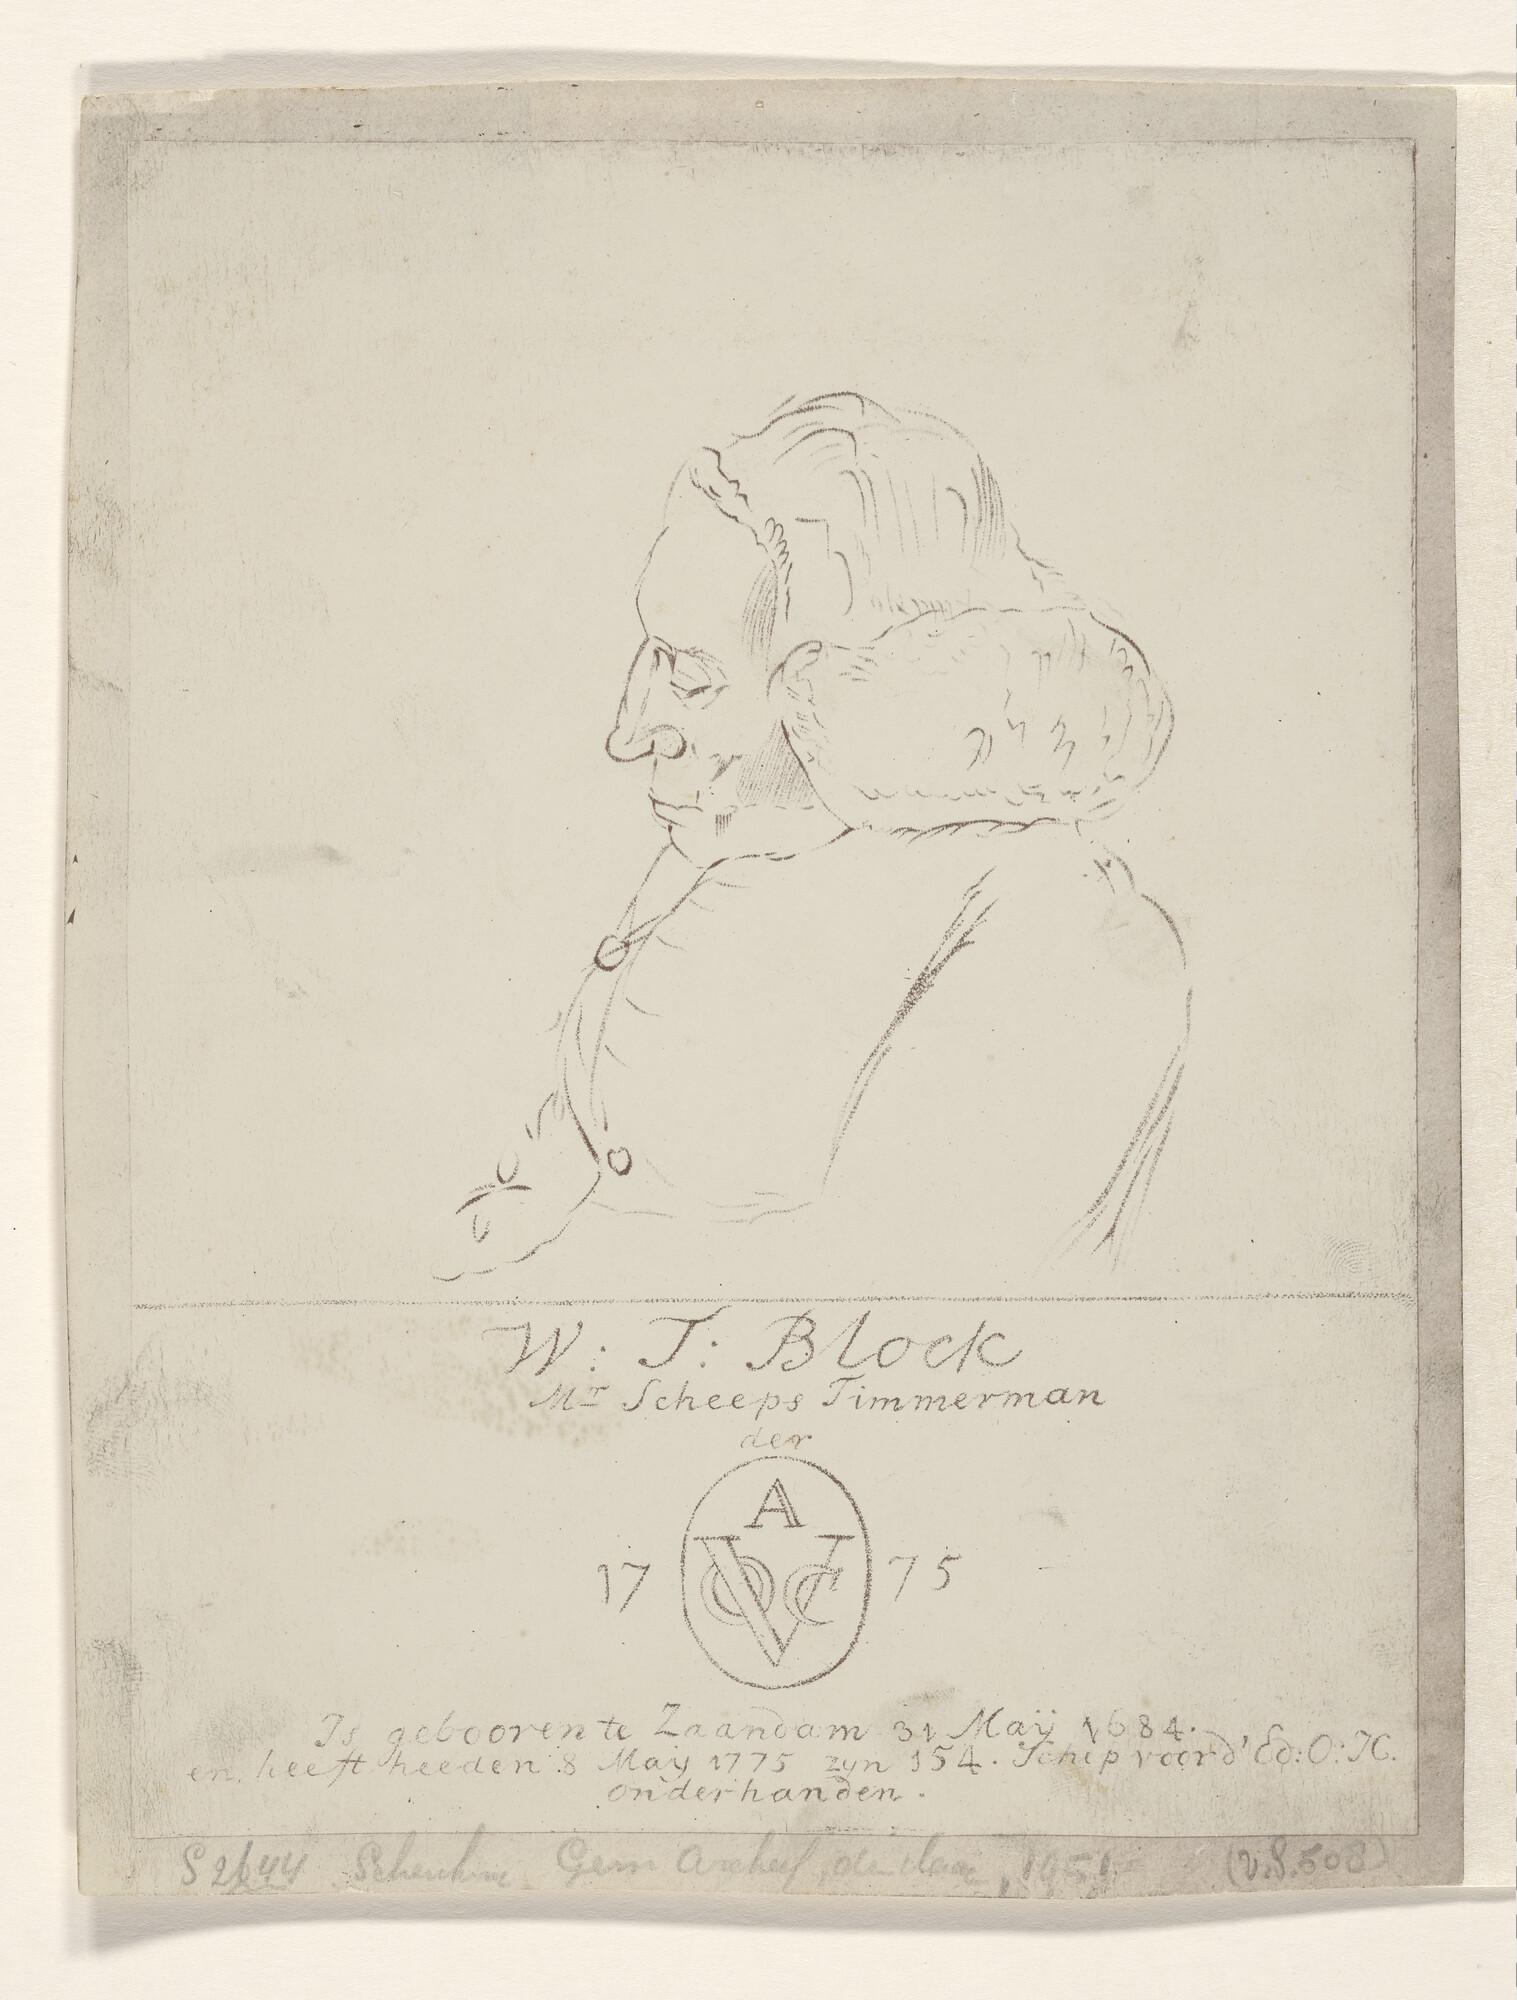 W : T : Block
Mr Scheeps Timmerman
der
A
17 VOC 75
Is gebooren te Zaandam 31 Maÿ 1684.
en heeft heeden 8 Maÿ 1775 zyn 154. Schip voor d' Ed: O: IC.
onderhanden.
S 2644 Schenking Gem Archief 1951 (v.S.508)